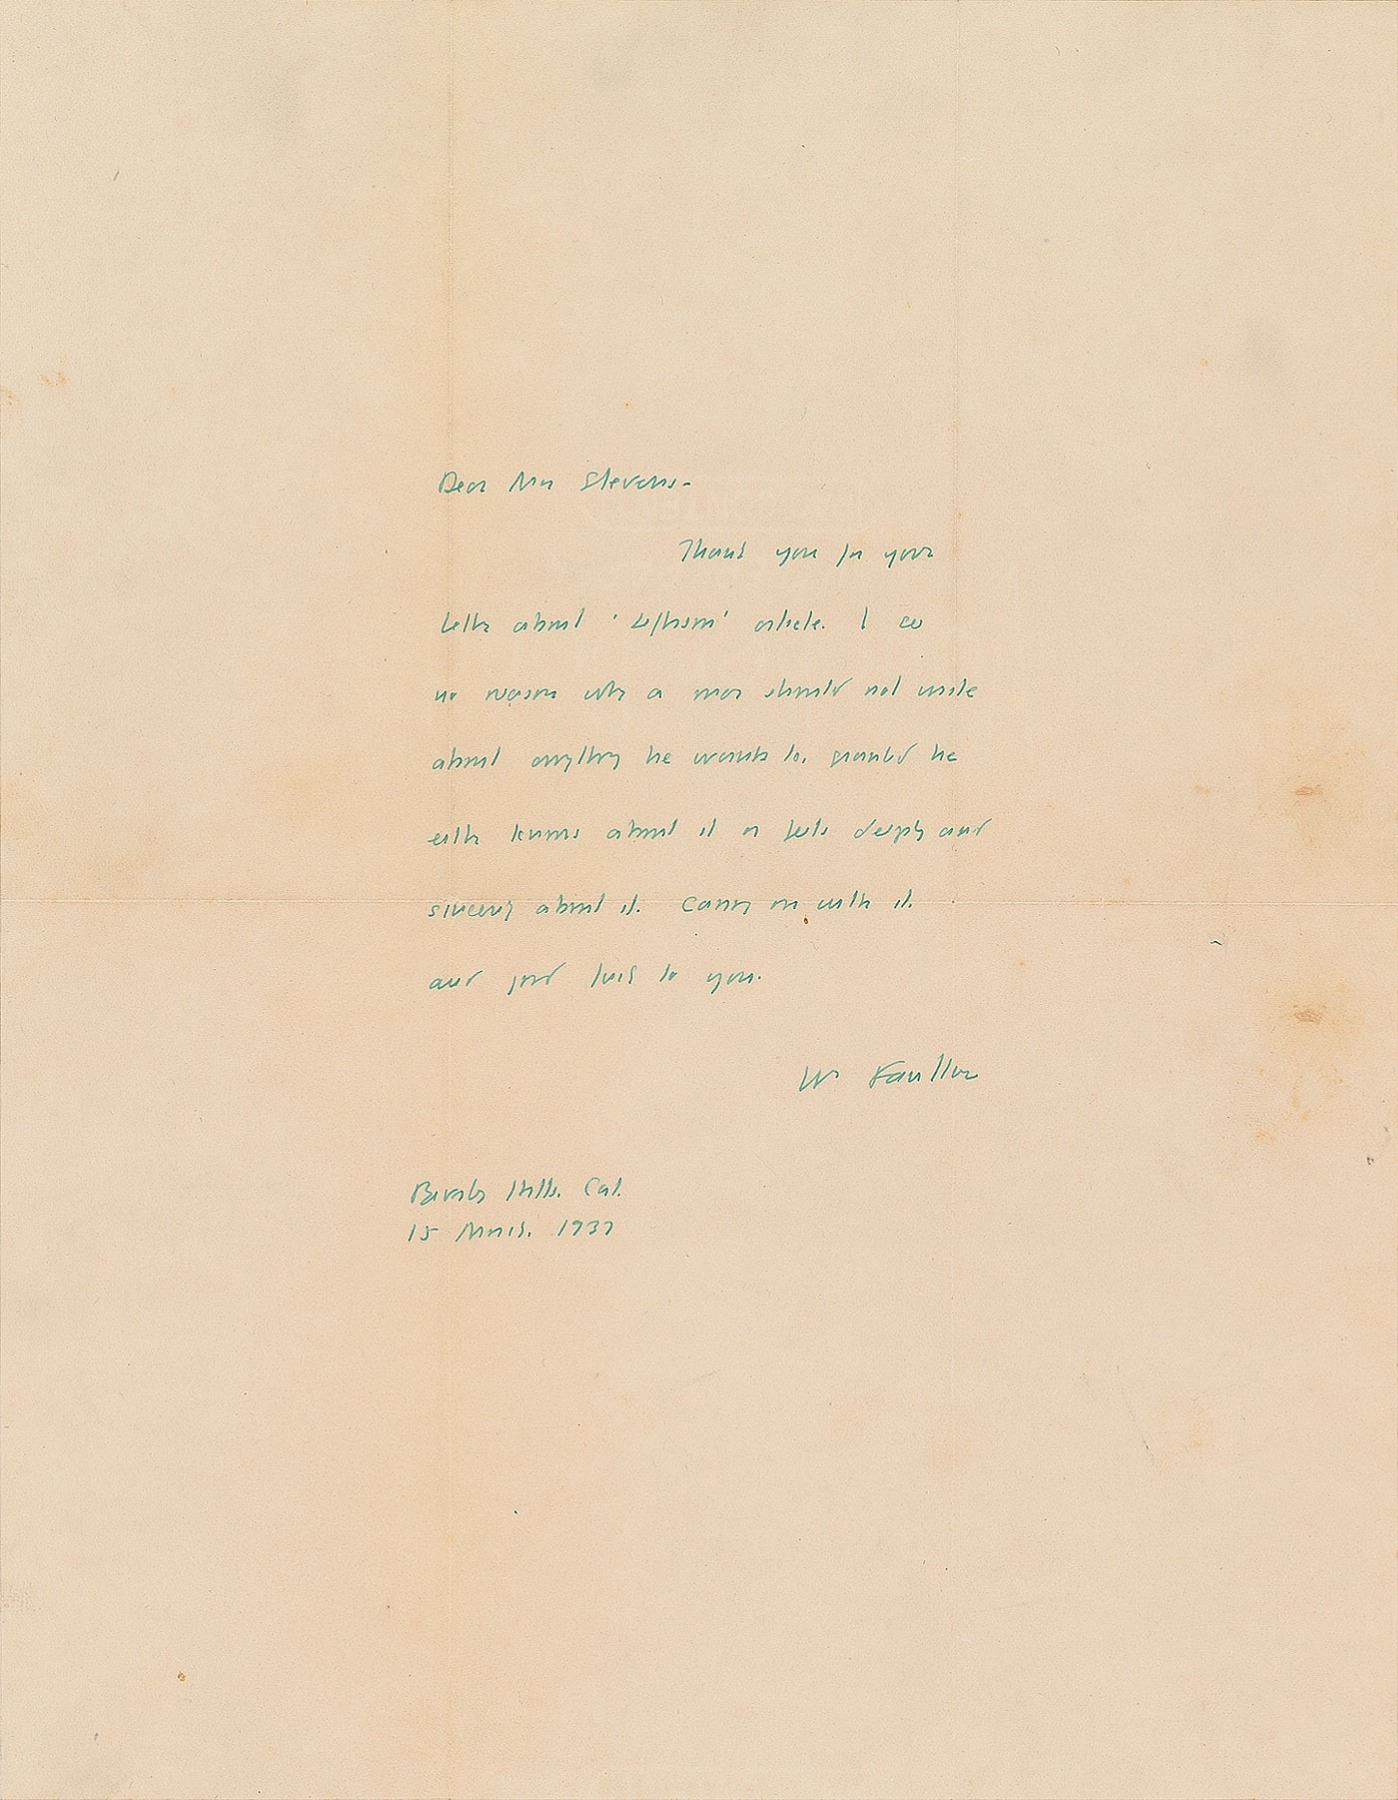 Dear Mr Stevens-
Thank you for your
letter about ' ' article. I see
no reason why a man should not write
about anything he wants to, granted he
either knows about it or feels deeply and
sincerely about it. Carry on with it.
and good luck to you.
Wm Faulkner
Beverly Hills. Cal.
15 March. 1937